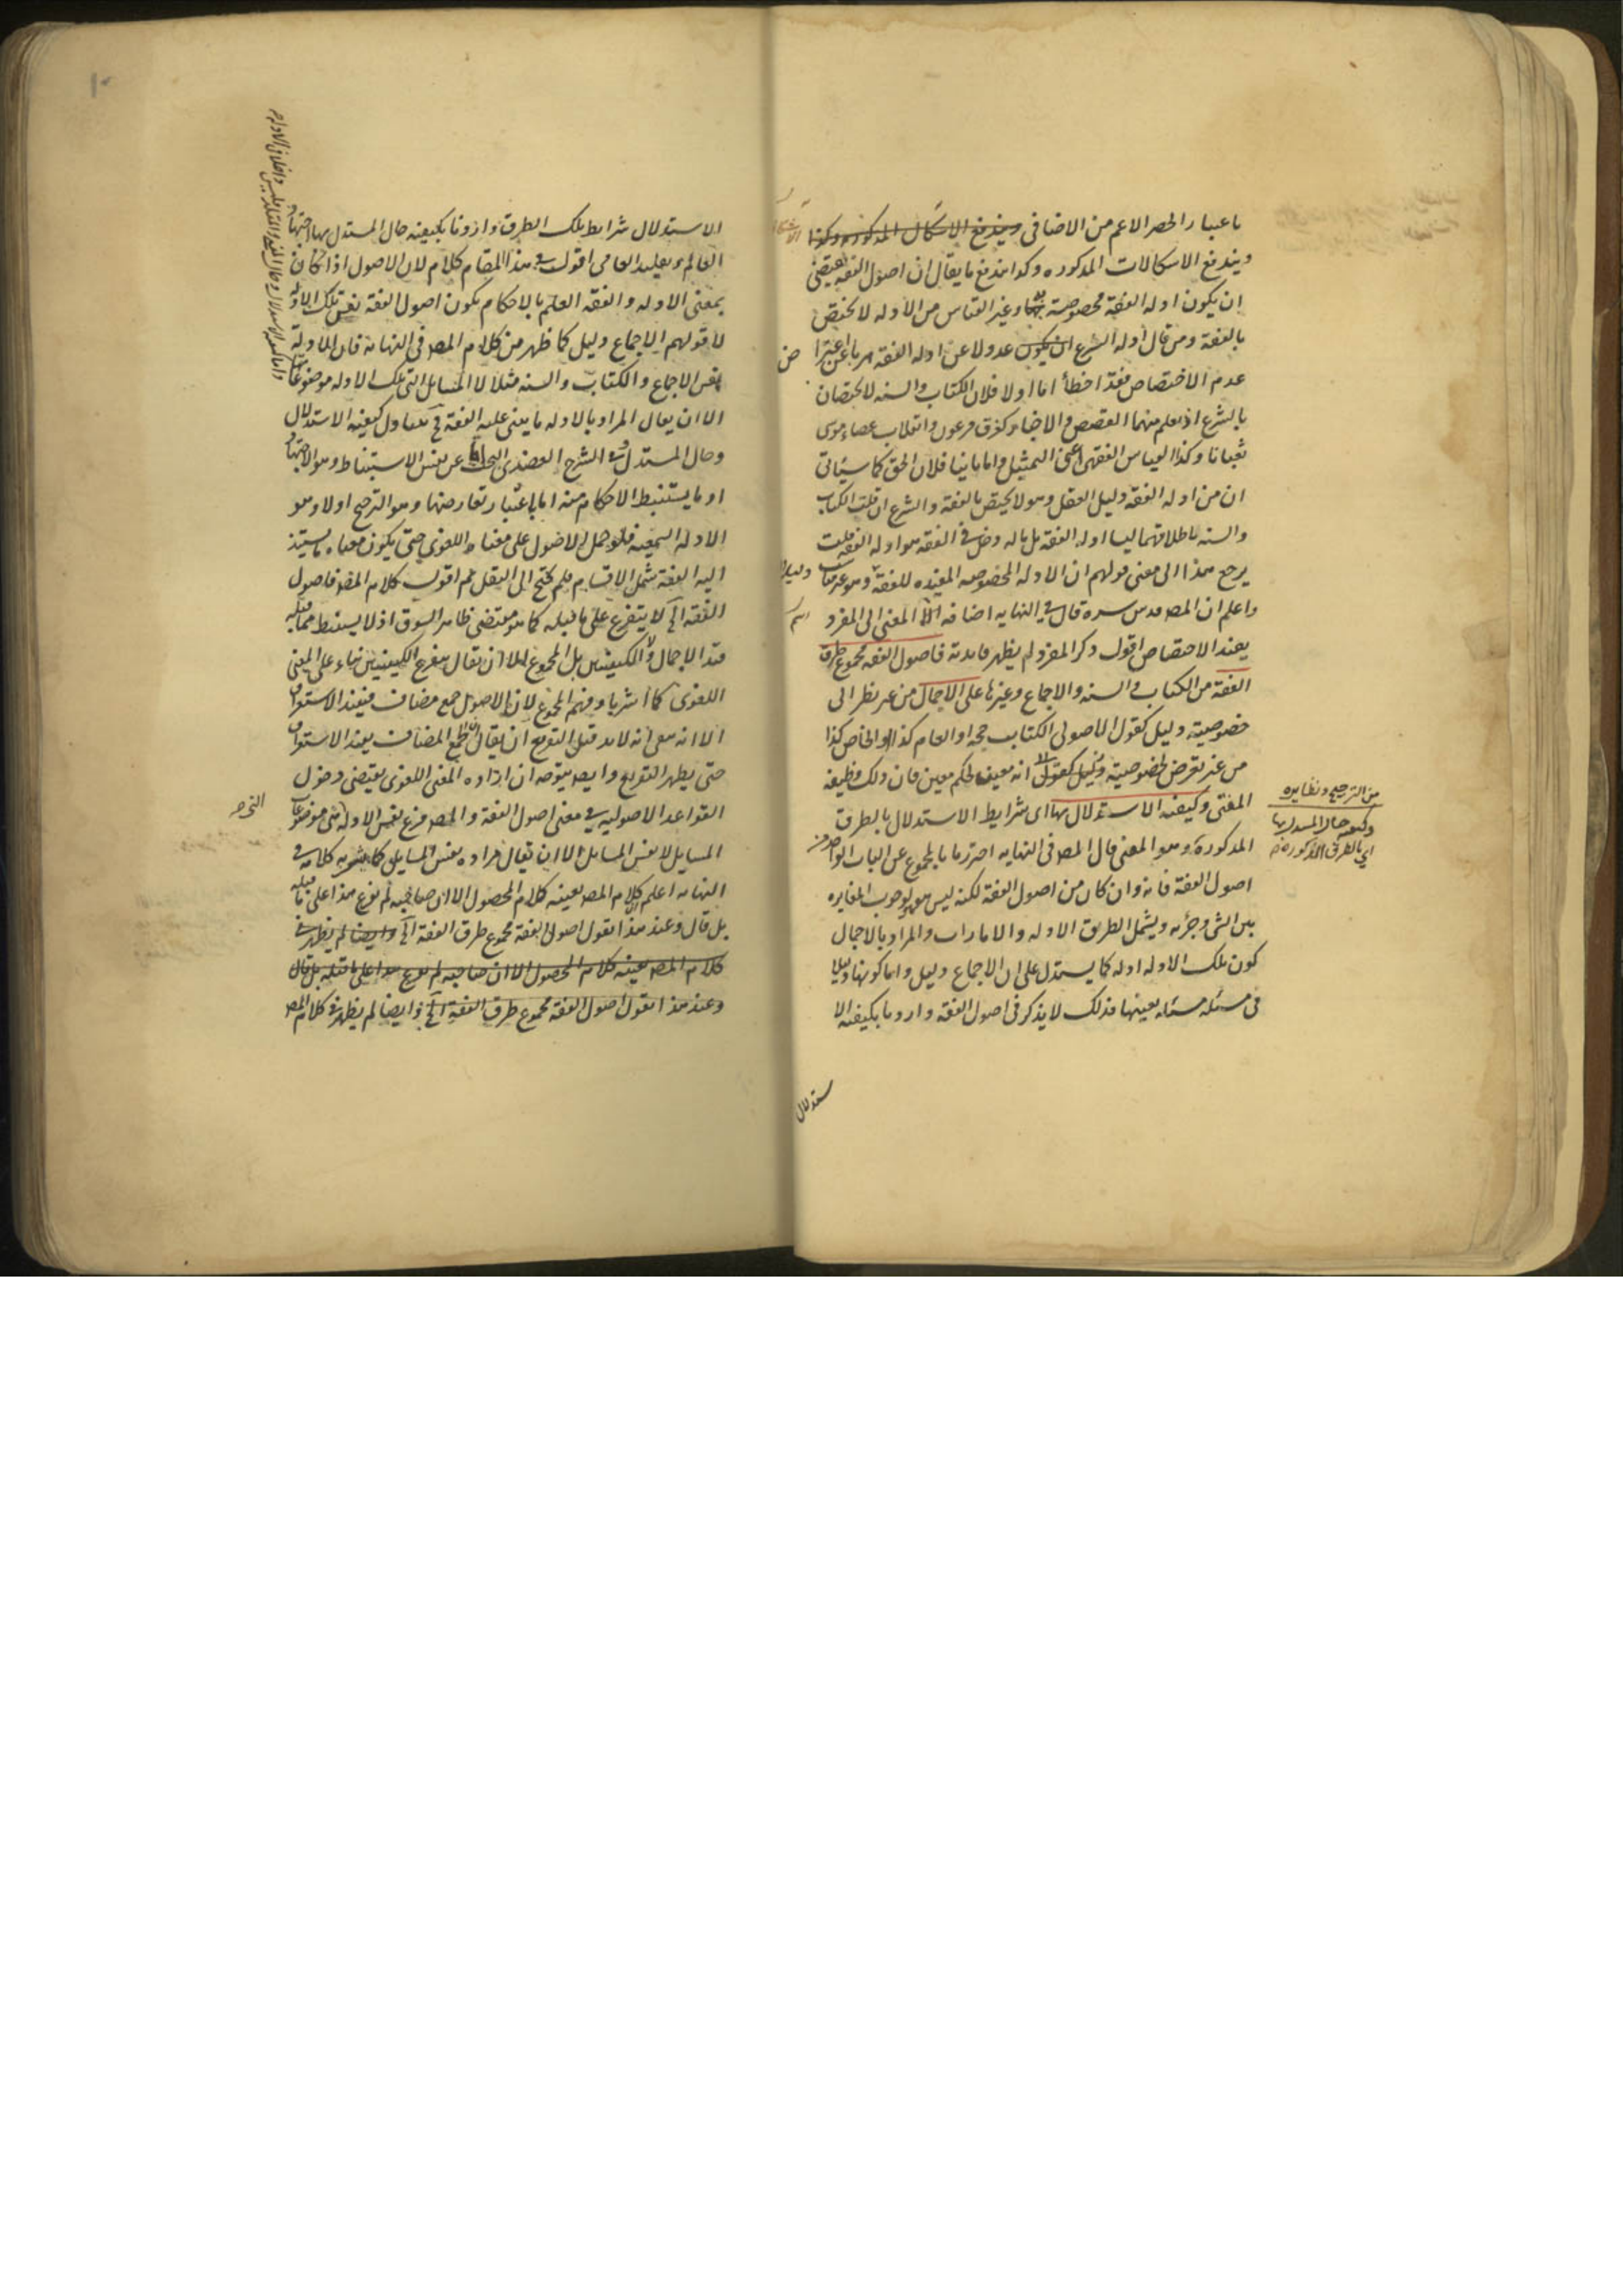 باعتبار الحصر الاعم من الاضافى ويندفع الاشكال المذكوره وكذا
ويندفع الاشكالات المذكوره وكذا يندفع ما يقال ان اصول الفقه يقتضى
ان يكون ادله الفقه مخصوصة بها وغير القياس من الادله لا يختص
بالفقة ومن قال ادله الشرع ان يكون عدولا عن ادله الفقه هربا عن اعتبار
عدم الاختصاص فقد اخطأ اما اولا فلان الكتاب والسنه لا يختصان
بالشرع اذ يعلم منهما القصص والاخبار كغرق فرعون وانقلاب عصاء موسى
ثعبانا وكذا القياس الفقهى اعنى التمثيل واما ثانيا فلان الحق كما سيأتى
ان من ادله الفقه دليل العقل وهو لا يختص بالفقه والشرع ان قلت الكتاب
والسنه باطلاقهما ليسا ادله الفقه بل ما له دخل فى الفقه هو ادله الفقه قلت
يرجع هذا الى معنى قولهم ان الادله المخصوصه المفيده للفقه
واعلم ان المصـ قدس سره قال فى النهايه اضافه المعنى الى المفرد
يفيد الاختصاص اقول ذكر المفرد لم يظهر فايدته فاصول الفقه مجموع طرق
الفقه من الكتاب والسنه والاجماع وغيرها على الاجمال من غير نظر الى
خصوصية دليل كقول الاصولى الكتاب حجه او العام كذا او الخاص كذا
من غير تعرض لخصوصية دليل كقولنا انه معين لحكم معين فان ذلك وظيفه
المفتى وكيفيه الاستدلال بها اى شرايط الاستدلال بالطرق
المذكوره وهو المعنى قال المصـ فى النهايه احترزنا بالمجموع عن الباب الواحد من
اصول الفقه فانه وان كان من اصول الفقه لكنه ليس هو لوجوب المغايره
بين الشى وجزئه ويشمل الطريق الادله والامارات والمراد بالاجمال
كون تلك الادله ادله كما يستدل على ان الاجماع دليل واما كونها دليلا
فى مسئله مسئله بعينها فذلك لا يذكر فى اصول الفقه واردنا بكيفيه الا
ستدلال
من الترجيح ونظايره
وكيفيه حال المستدل بها
اى بالطرق المذكوره
الاستدلال شرايط تلك الطرق واردنا بكيفيه حال المستدل بها اجتهاد
العالم وتقليد العامى اقول فى هذا المقام كلام لان الاصول اذا كان
بمعنى الادله والفقه العلم بالاحكام يكون اصول الفقه نفس تلك الادله
لا قولهم الاجماع دليل كما ظهر من كلام المصـ فى النهايه فان الادله
نفس الاجماع والكتاب والسنه مثلا لا المسايل التى تلك الادله موضوعاتها
الا ان يقال المراد بالادله ما يبتنى عليه الفقه فيتناول كيفيه الاستدلال
وحال المستدل وفى الشرح العضدى البحث اما عن نفس الاستنباط وهو الاجتهاد
او ما يستنبط الاحكام منه اما باعتبار تعارضها وهو الترجيح اولا وهو
الادله السمعيه فلو حمل الاصول على معناه اللغوى حتى يكون معناه ما يستند
اليه الفقه شمل الاقسام فلم يحتج الى النقل ثم اقول كلام المصـ فاصول
الفقه الخ لا يتفرع على ما قبله كما هو مقتضى ظاهر السوق اذ لا يستنبط مما قبله
قيد الاجمال ولا الكيفيتين بل المجموع الا ان يقال يتفرع الكيفيتين بناء على المعنى
اللغوى كما اشرنا وفهم المجموع لان الاصول جمع مضاف فيفيد الاستغراق
الا انه بقى انه لا بد قبل التفريع ان يقال ان الجمع المضاف يفيد الاستغراق
حتى يظهر التفريع وايضـ يتوجه ان اراده المعنى اللغوى يقتضى دخول
القواعد الاصوليه فى معنى اصول الفقه والمصـ فرع نفس الادله التى موضوعات
المسايل لا نفس المسايل الا ان يقال مراده نفس المسايل كما يشعر به كلامه فى
النهايه اعلم ان كلام المصـ بعينه كلام المحصول الا ان صاحبه لم يفرع هذا على ما قبله
بل قال وعند هذا نقول اصول الفقه مجموع طرق الفقه الخ وايضا لم يظهر فى
كلام المصـ بعينه كلام المحصول الا ان صاحبه لم يفرع هذا على ما قبله بل قال
وعند هذا نقول اصول الفقه مجموع طرق الفقه الخ وايضا لم يظهر فى كلام المصـ